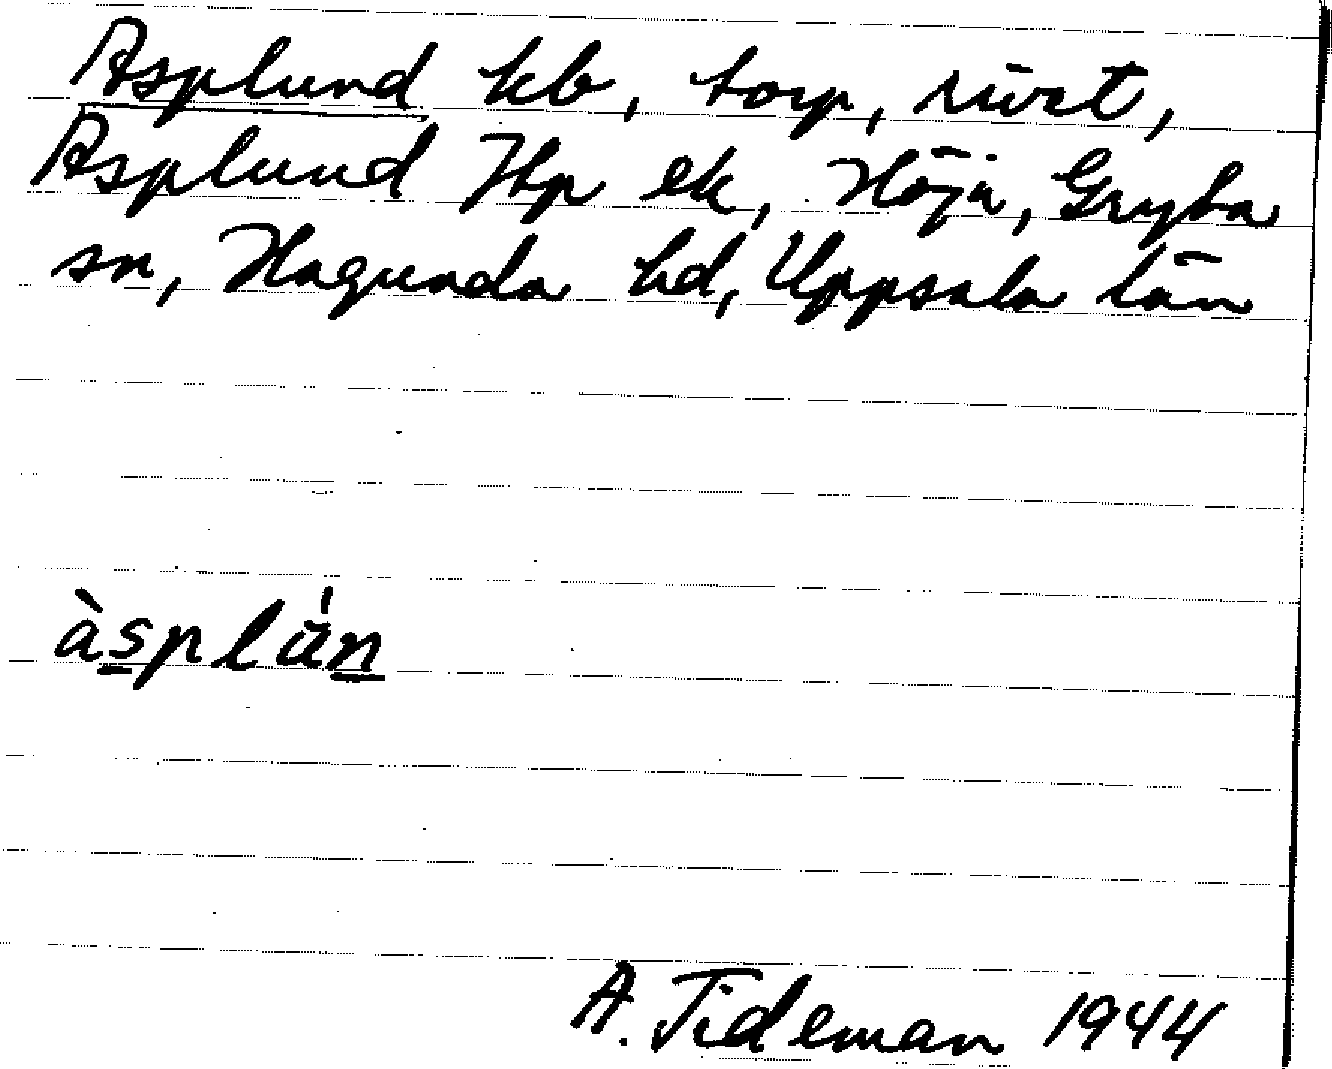 Asplund kb, torp, rivet,
Asplund Tbp ek, Höja, Gryta
sn, Hagunda hd, Uppsala län
àsplán
A. Tideman 1944